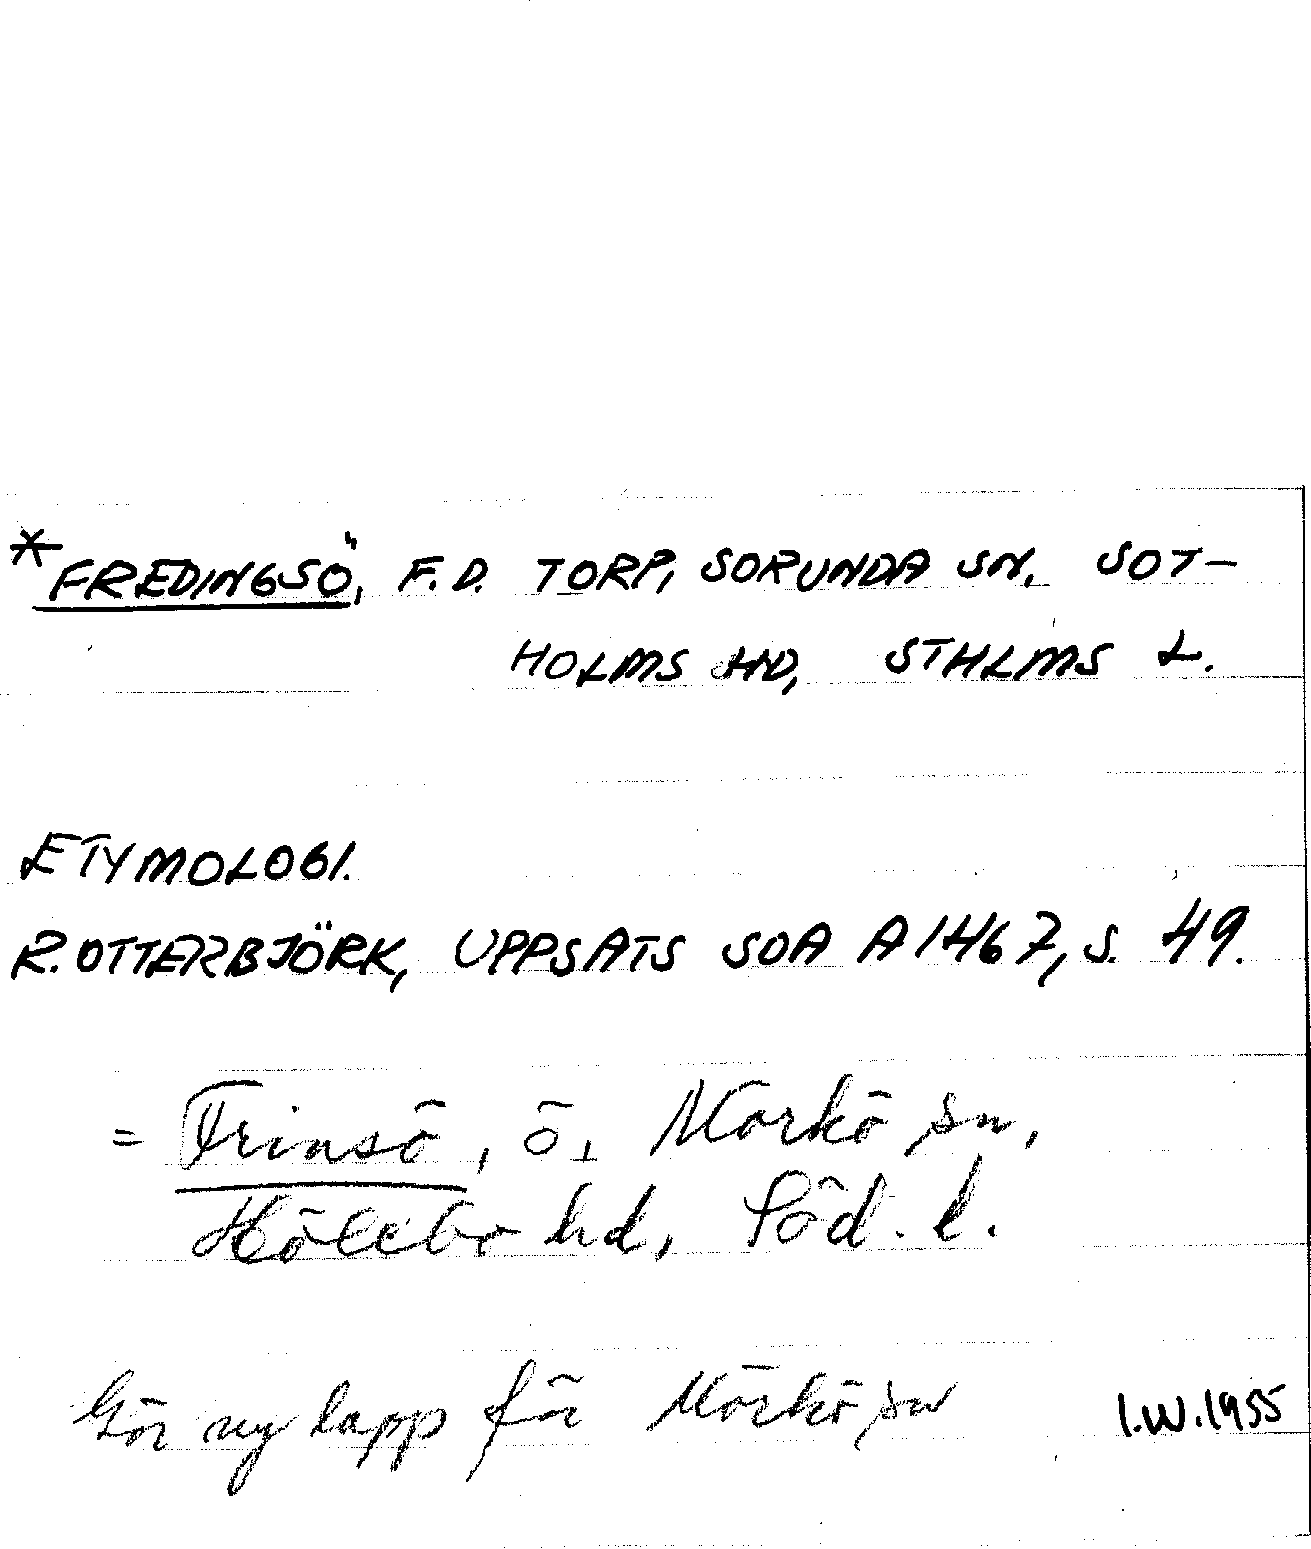 *FREDINGSÖ, F.D. TORP, SORUNDA SN, SOT-
HOLMS HD, STHLMS L.
ETYMOLOGI.
R. OTTERBJÖRK, UPPSATS SOA A 1467, S. 49.
= Frinsö, ö, Mörkö sn,
Hölebo hd, Söd. l.
Gör ny lapp för Mörkö sn
I.W. 1955